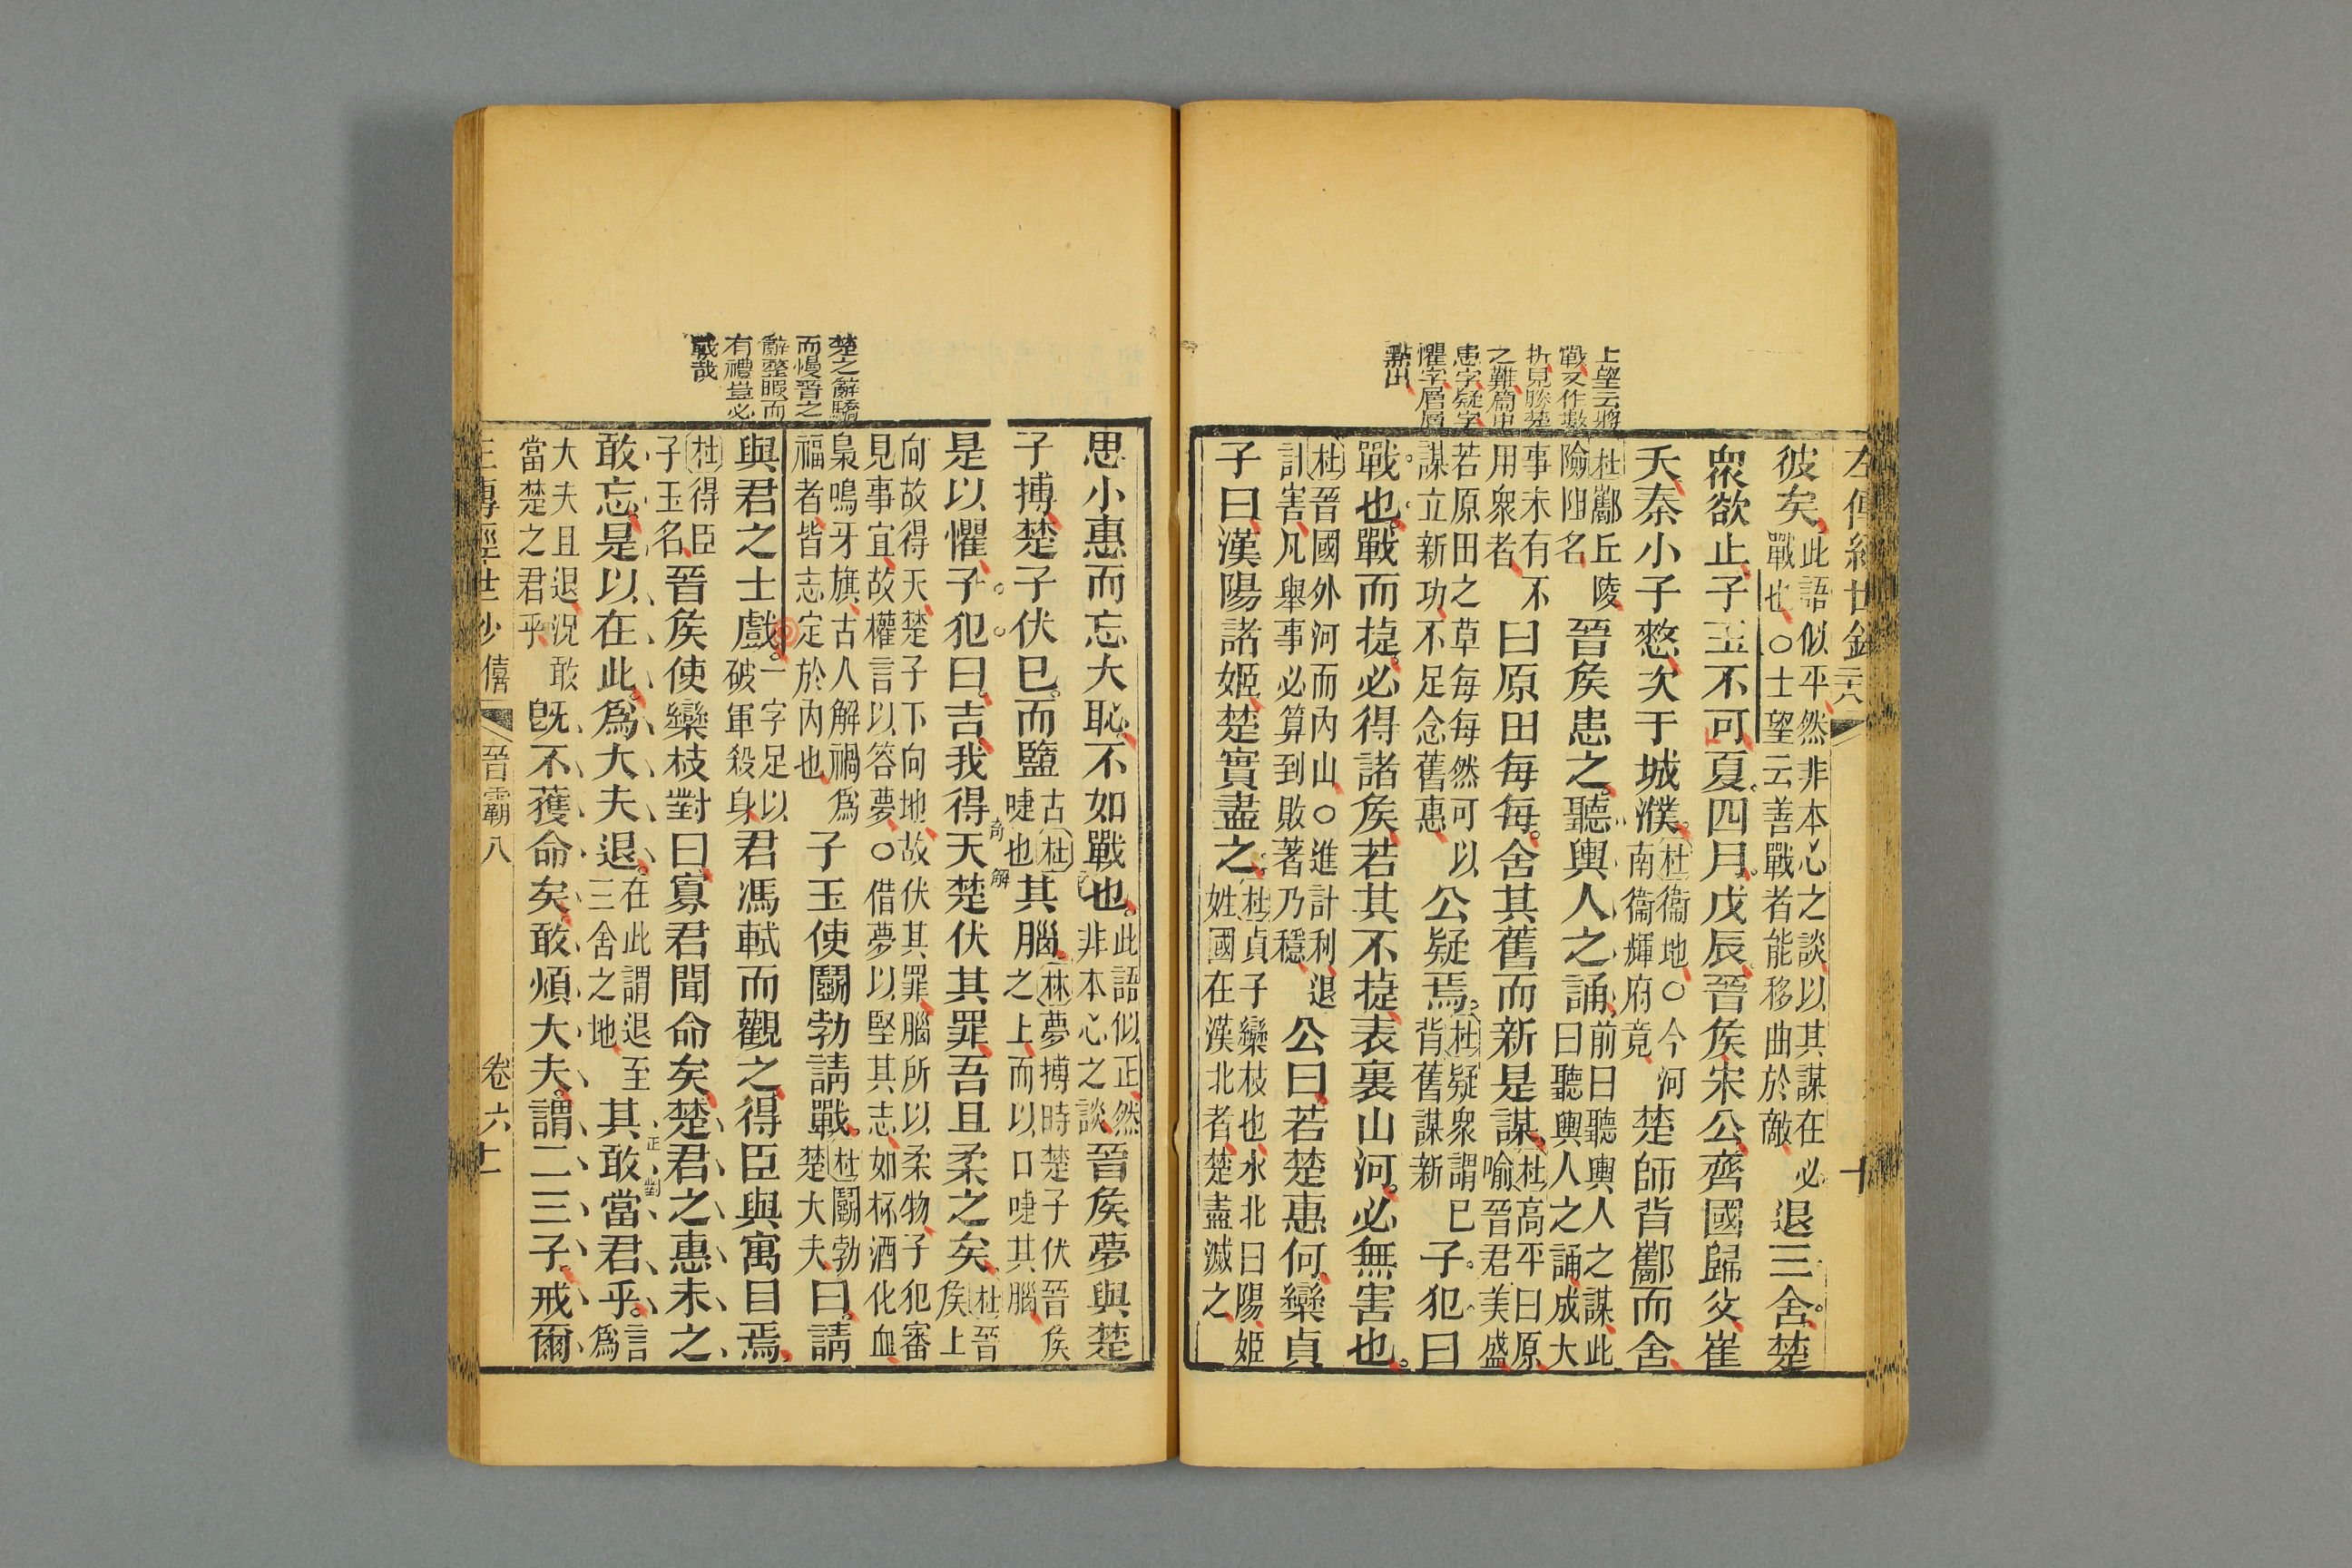 上望云將
戰又作數
折見勝楚
之難篇中
患字疑字
懼字層層
點出
彼矣此語似平然非本心之談以其謀在必
戰也○士望云善戰者能移曲於敵退三舍楚
眾欲止子玉不可夏四月戊辰晉矦宋公齊國歸父崔
夭秦小子憖次于城濮杜衞地○今河
南衞輝府竟楚師背酅而舍
杜酅丘陵
險阻名晉矦患之聽輿人之誦前日聽輿人之謀此
曰聽輿人之誦成大
事未有不
用眾者曰原田每每舍其舊而新是謀杜高平曰原
喻晉君美盛
若原田之草每每然可以
謀立新功不足念舊惠公疑焉杜疑眾謂已
背舊謀新子犯曰
戰也戰而捷必得諸矦若其不捷表裏山河必無害也
杜晉國外河而內山○進計利退
計害凡舉事必算到敗著乃穩公曰若楚惠何欒貞
子曰漢陽諸姬楚實盡之杜貞子欒枝也水北曰陽姬
姓國在漢北者楚盡滅之
楚之辭驕
而慢晉之
辭整暇而
有禮豈必
戰哉
思小惠而忘大恥不如戰也此語似正然
非本心之談晉矦夢與楚
子搏楚子伏已而盬古杜
啑也其腦林夢搏時楚子伏晉矦
之上而以口啑其腦
是以懼子犯曰吉我得天楚伏其罪吾且柔之矣杜晉
矦上
向故得天楚子下向地故伏其罪腦所以柔物子犯審
見事宜故權言以答夢○借夢以堅其志如杯酒化血
梟鳴牙旗古人解禍為
福者皆志定於內也子玉使鬭勃請戰杜鬭勃
楚大夫曰請
與君之士戲一字足以
破軍殺身君馮軾而觀之得臣與寓目焉
杜得臣
子玉名晉矦使欒枝對曰寡君聞命矣楚君之惠未之
敢忘是以在此為大夫退在此謂退至
三舍之地其敢當君乎言
為
大夫且退況敢
當楚之君乎既不獲命矣敢煩大夫謂二三子戒爾
僖 晉霸八 卷六 十一